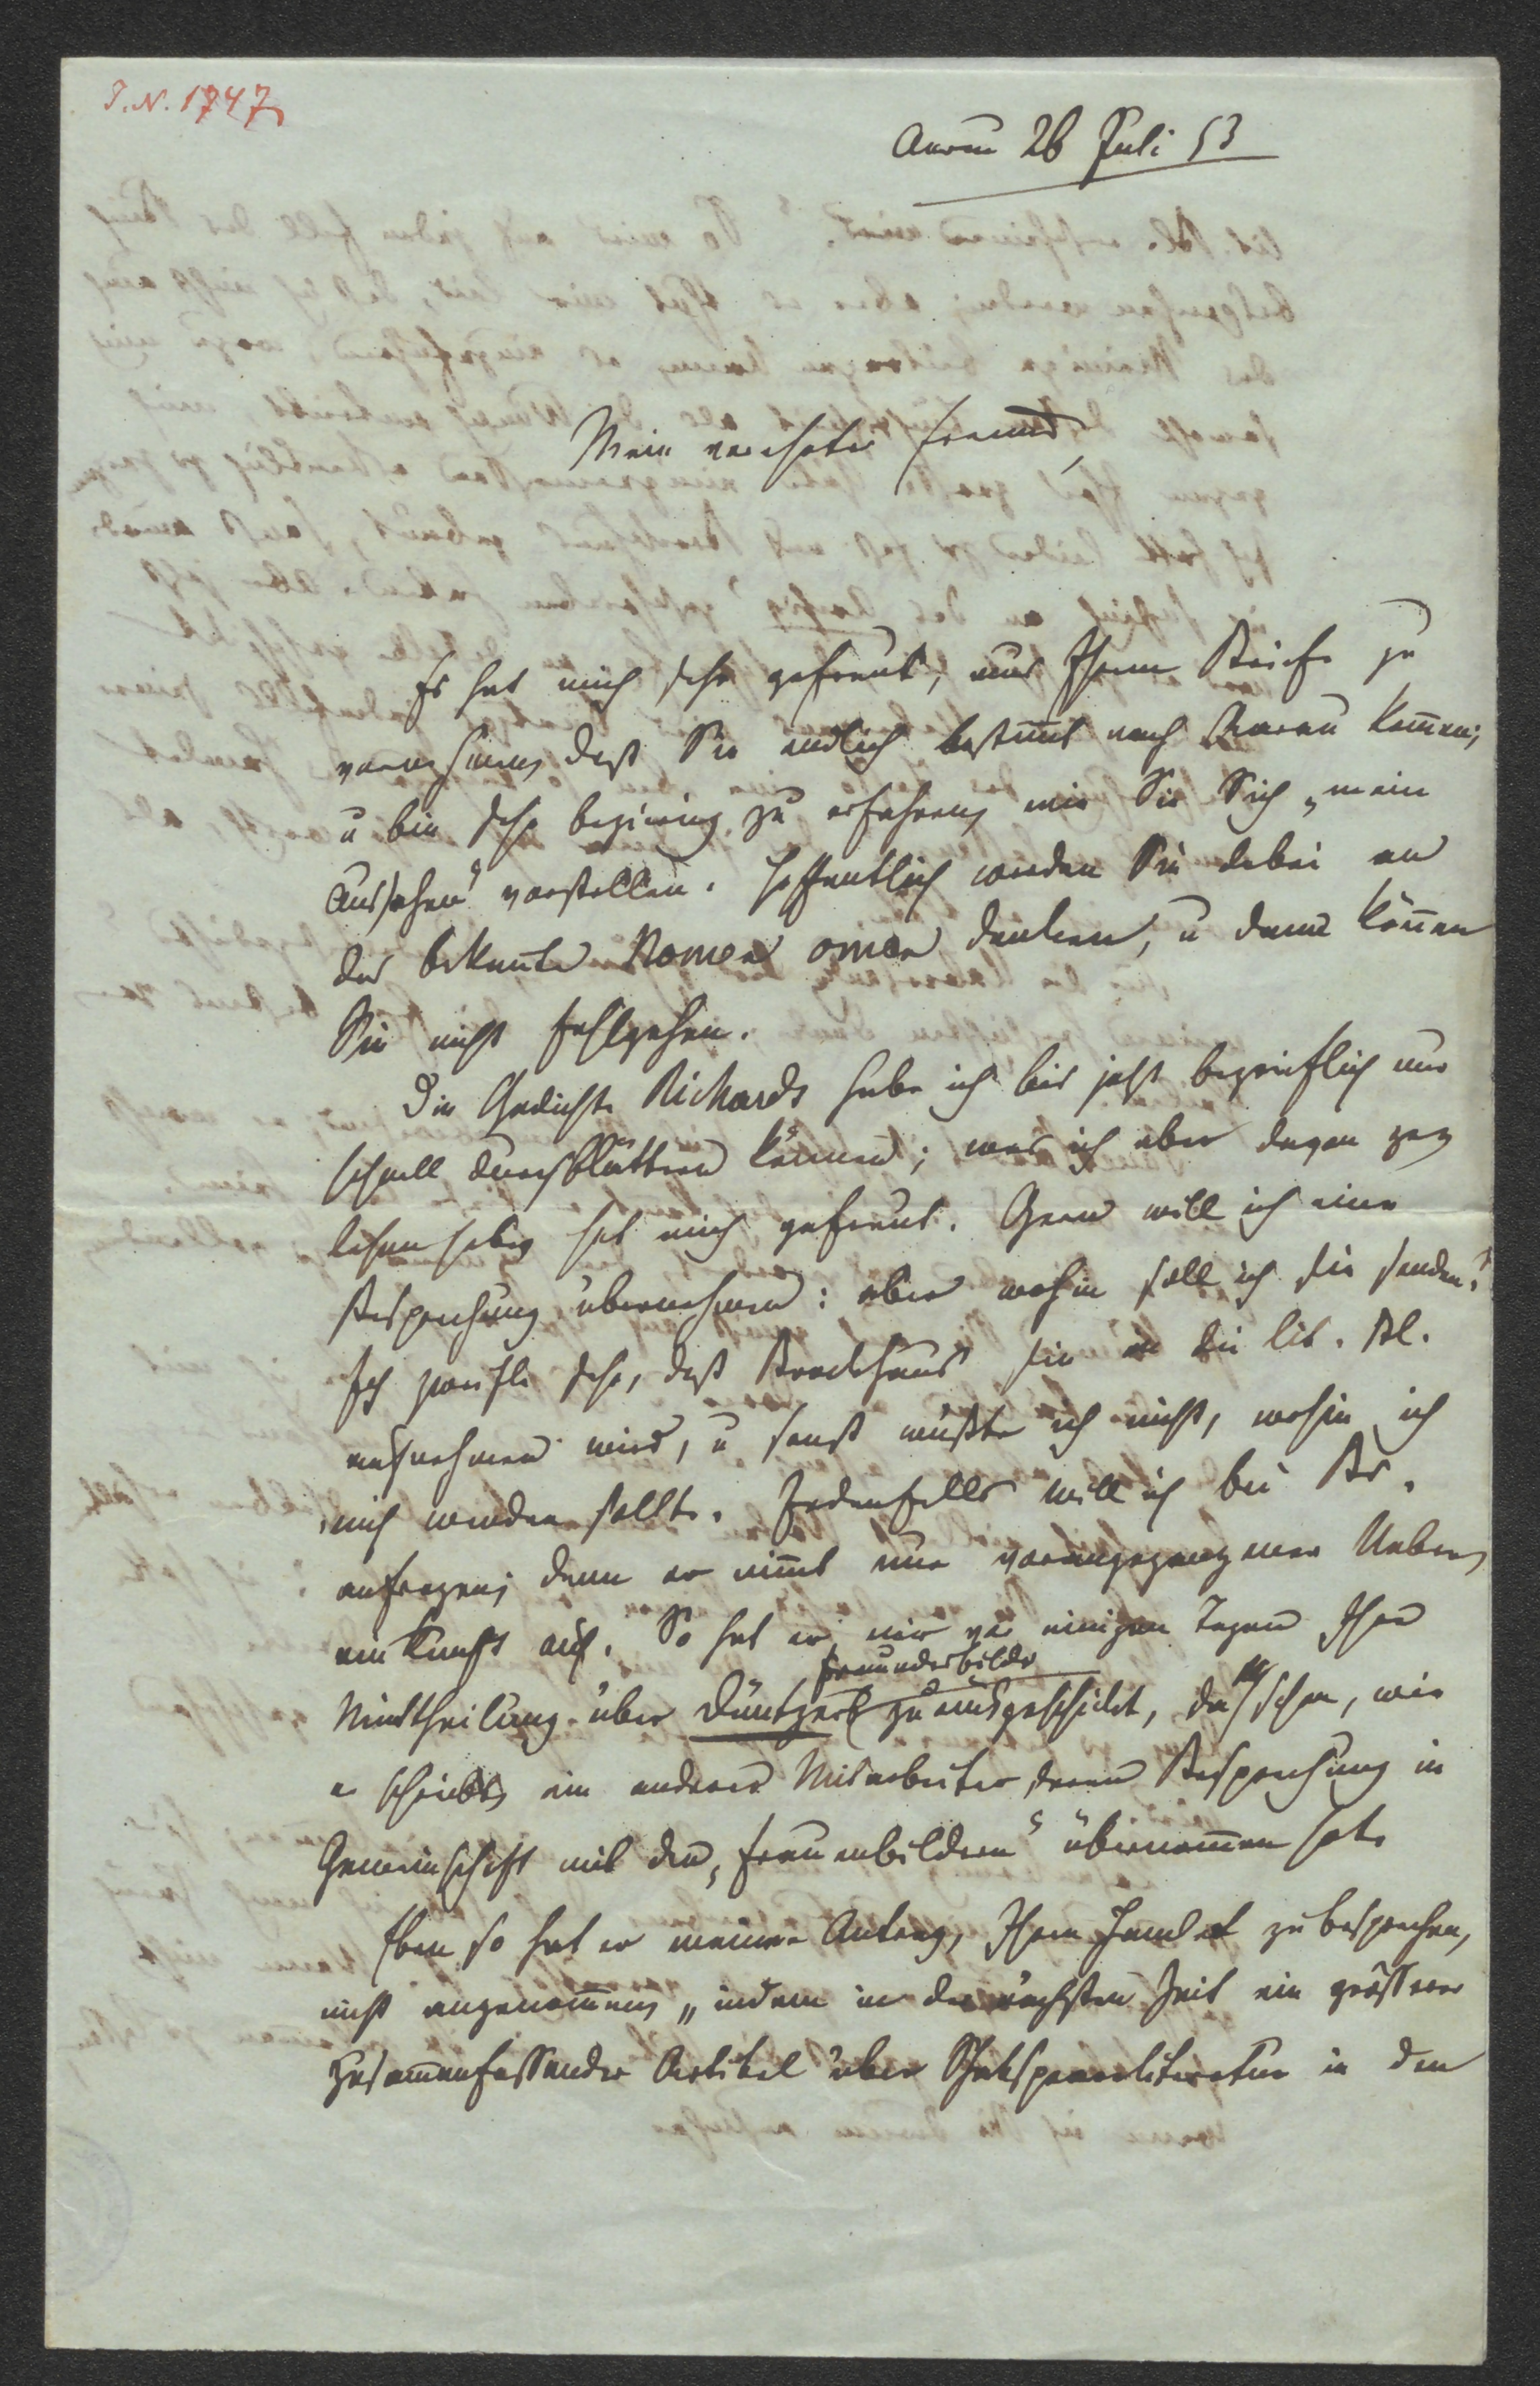 I.N. 1747
Aarau 26 Juli 53
Mein verehrter Freund,
Es hat mich sehr gefreut, aus Ihrem Briefe zu
vernehmen, daß Sie endlich bestim̄t nach Aarau kom̄en;
u bin sehr begierig zu erfahren, wie Sie Sich „mein
Aussehen“ vorstellen. Hoffentlich werden Sie dabei an
das bekannte Nomen omen denken, u dann kön̄en
Sie nicht fehlgehen.
Die Gedichte Richards habe ich bis jetzt begreiflich nur
schnell durchblättern können; was ich aber davon ge=
lesen habe, hat mich gefreut. Gern will ich eine
Besprechung übernehmen: aber wohin soll ich sie senden?
Ich zweifle sehr, daß Brockhaus sie in die lit. Bl.
aufnehmen wird, u sonst wüßte ich nicht, wohin ich
mich wenden sollte. Jedenfalls will ich bei Br.
anfragen; denn er nim̄t nur vorangegangener Ueber=
einkunft auf. So hat er mir vor einigen Tagen Ihre
Mittheilung über Düntzers Freundesbilder zurückgeschickt, da schon, wie
er schreibt, ein anderer Mitarbeiter deren Besprechung in
Gemeinschaft mit den „Frauenbildern“ übernom̄en hat.
Eben so hat er meinen Antrag, Ihren Hamlet zu besprechen,
nicht angenom̄en, „indem in der nächsten Zeit ein größerer
zusam̄enfassender Artikel über Shakspeareliteratur in den